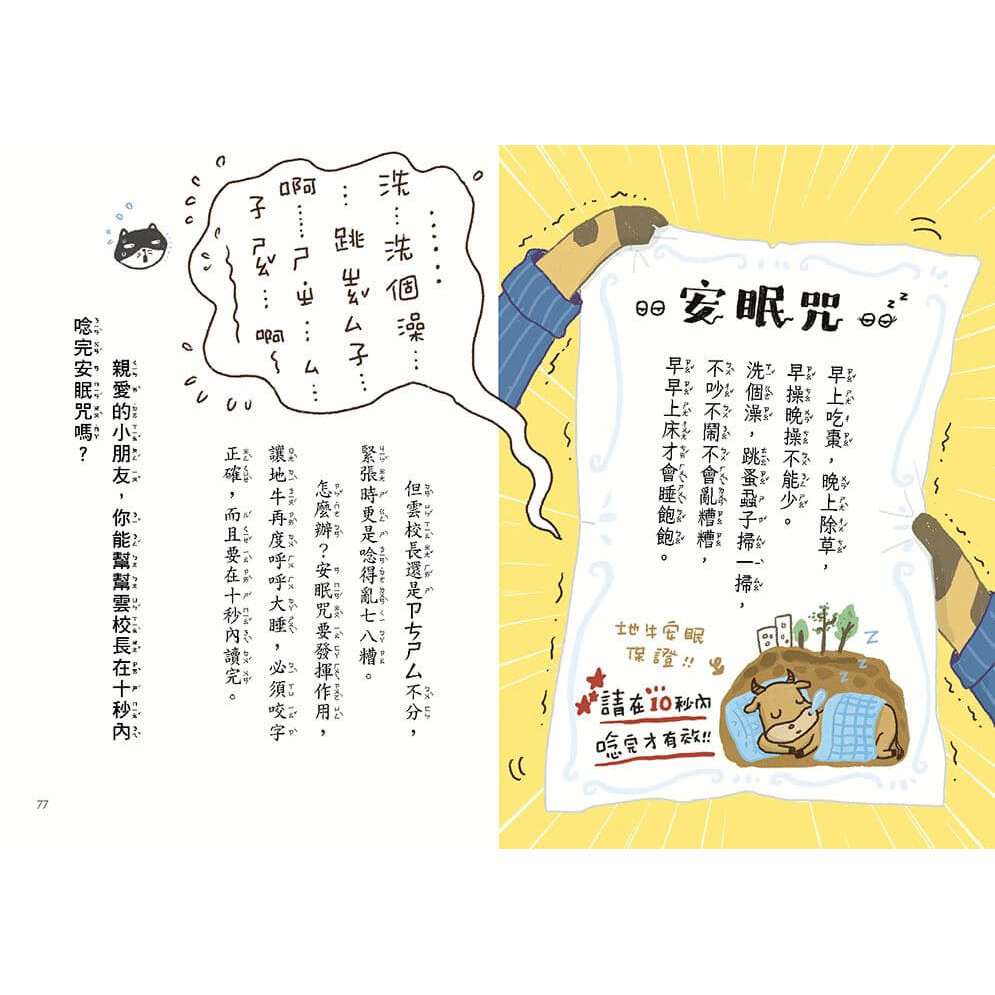 安眠咒
早上吃棗，晚上除草，
早操晚操不能少。
洗個澡，跳蚤蝨子掃一掃，
不吵不鬧不會亂糟糟，
早早上床才會睡飽飽。
地牛安眠
保證!!
請在10秒內
唸完才有效!!
z z
z z z
……
洗…洗個澡…
…跳ㄓㄠㄙ子…
啊……ㄕㄓ…ㄙ…
子ㄕㄠ…啊~
但雲校長還是ㄗㄘㄕㄙ不分，
緊張時更是唸得亂七八糟。
怎麼辦？安眠咒要發揮作用，
讓地牛再度呼呼大睡，必須咬字
正確，而且要在十秒內讀完。
親愛的小朋友，你能幫幫雲校長在十秒內
唸完安眠咒嗎？
77